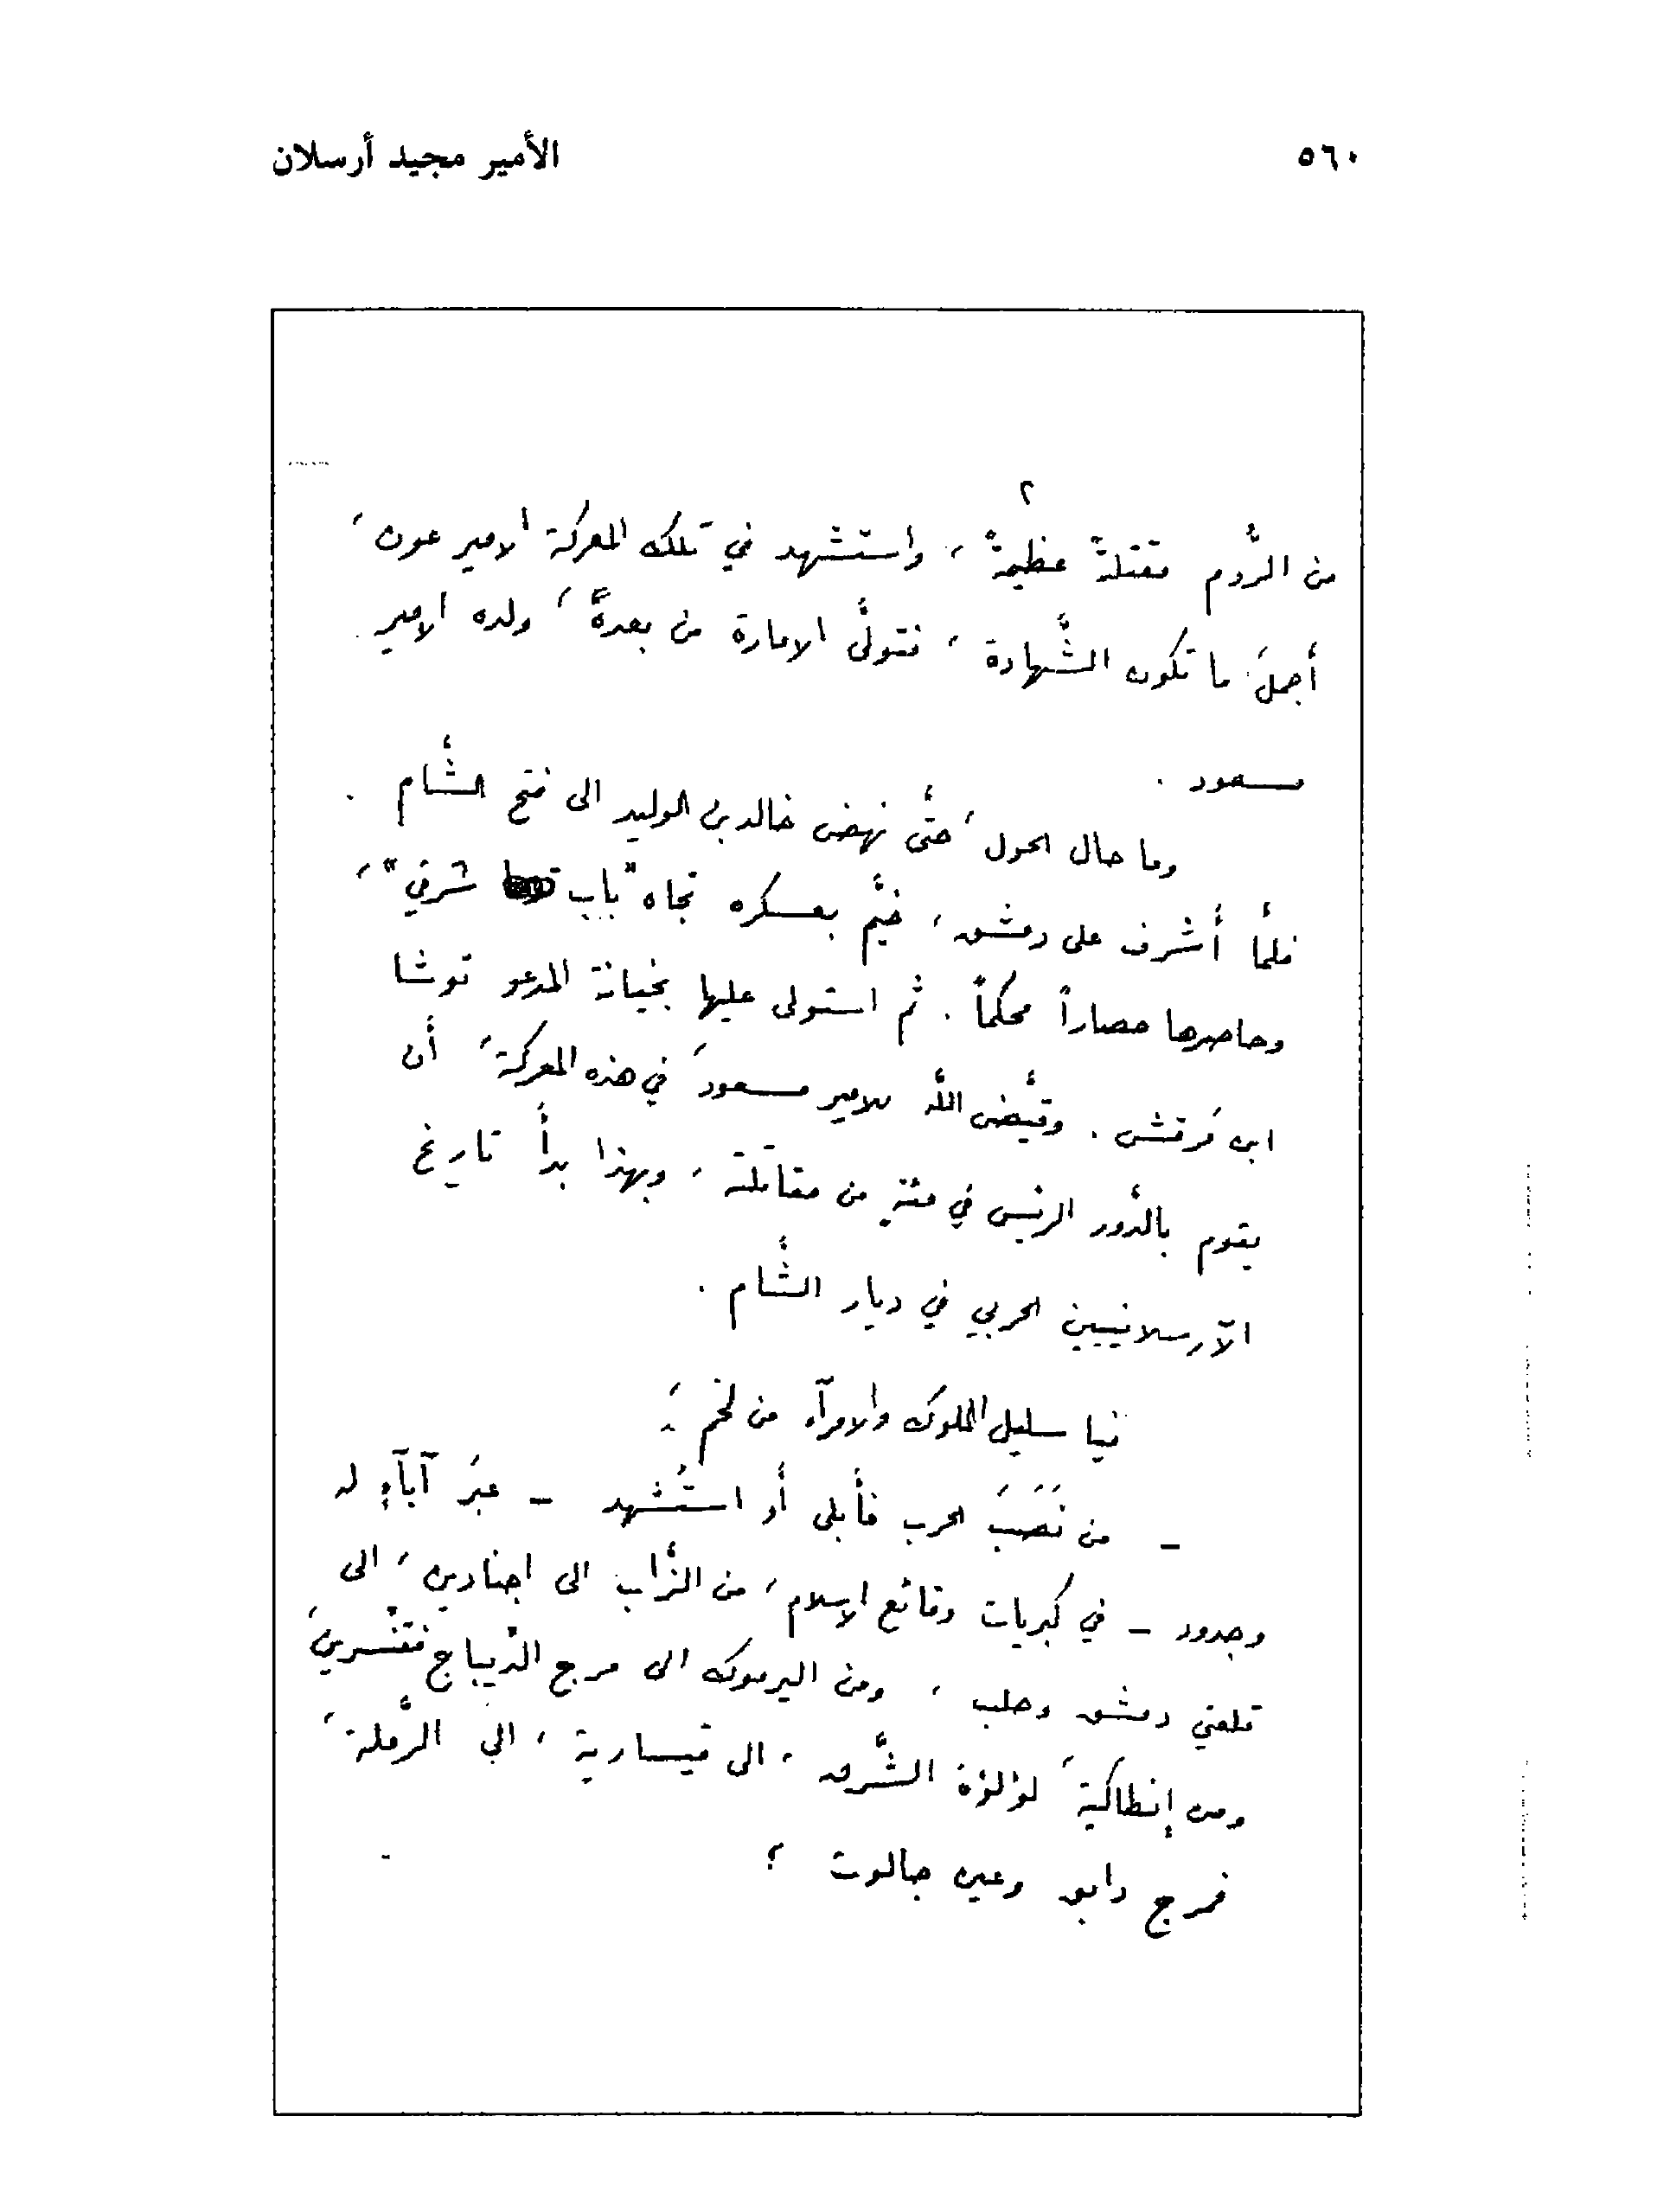 ٥٦٠
الأمير مجيد أرسلان
٢
من الرُّوم مقتلةً عظيمةً ، واستشهد في تلك المعركة الامير عون ،
أجملَ ما تكون الشَّهادة ، فتولَّى الامارة من بعده ، ولده الامير
مسعود .
وما حال الحول ، حتَّى نهض خالد بن الوليد الى فتح الشَّام .
فلمَّا أشرف على دمشق ، خيَّم بعسكره تجاه " باب شرقي " ،
وحاصرها حصاراً محكماً . ثم استولى عليها بخيانة المدعو توشا
ابن مَرقش . وقيَّض اللَّه للامير مسعود ، في هذه المعركة ، أن
يقوم بالدَّور الرئيس في مئةٍ من مقاتلته ، وبهذا بدأ تاريخ
الآرسلانيين الحربي في ديار الشَّام .
فيا سليل الملوك والامرآء من لخم ،
ـ من نَصَبَ الحرب فأبلى أو استُشهد ـ عبرَ آبآءٍ له
وجدود ـ في كبريات وقائع الاسلام ، من الزَّاب الى اجنادين ، الى
قلعتي دمشق وحلب ، ومن اليرموك الى مرج الدّيباج فقنّسرينَ ،
ومن إنطاكية ، لؤلؤة الشَّرق ، الى قيسارية ، الى الرَّملة ،
فمرج دابق وعين جالوت ؛